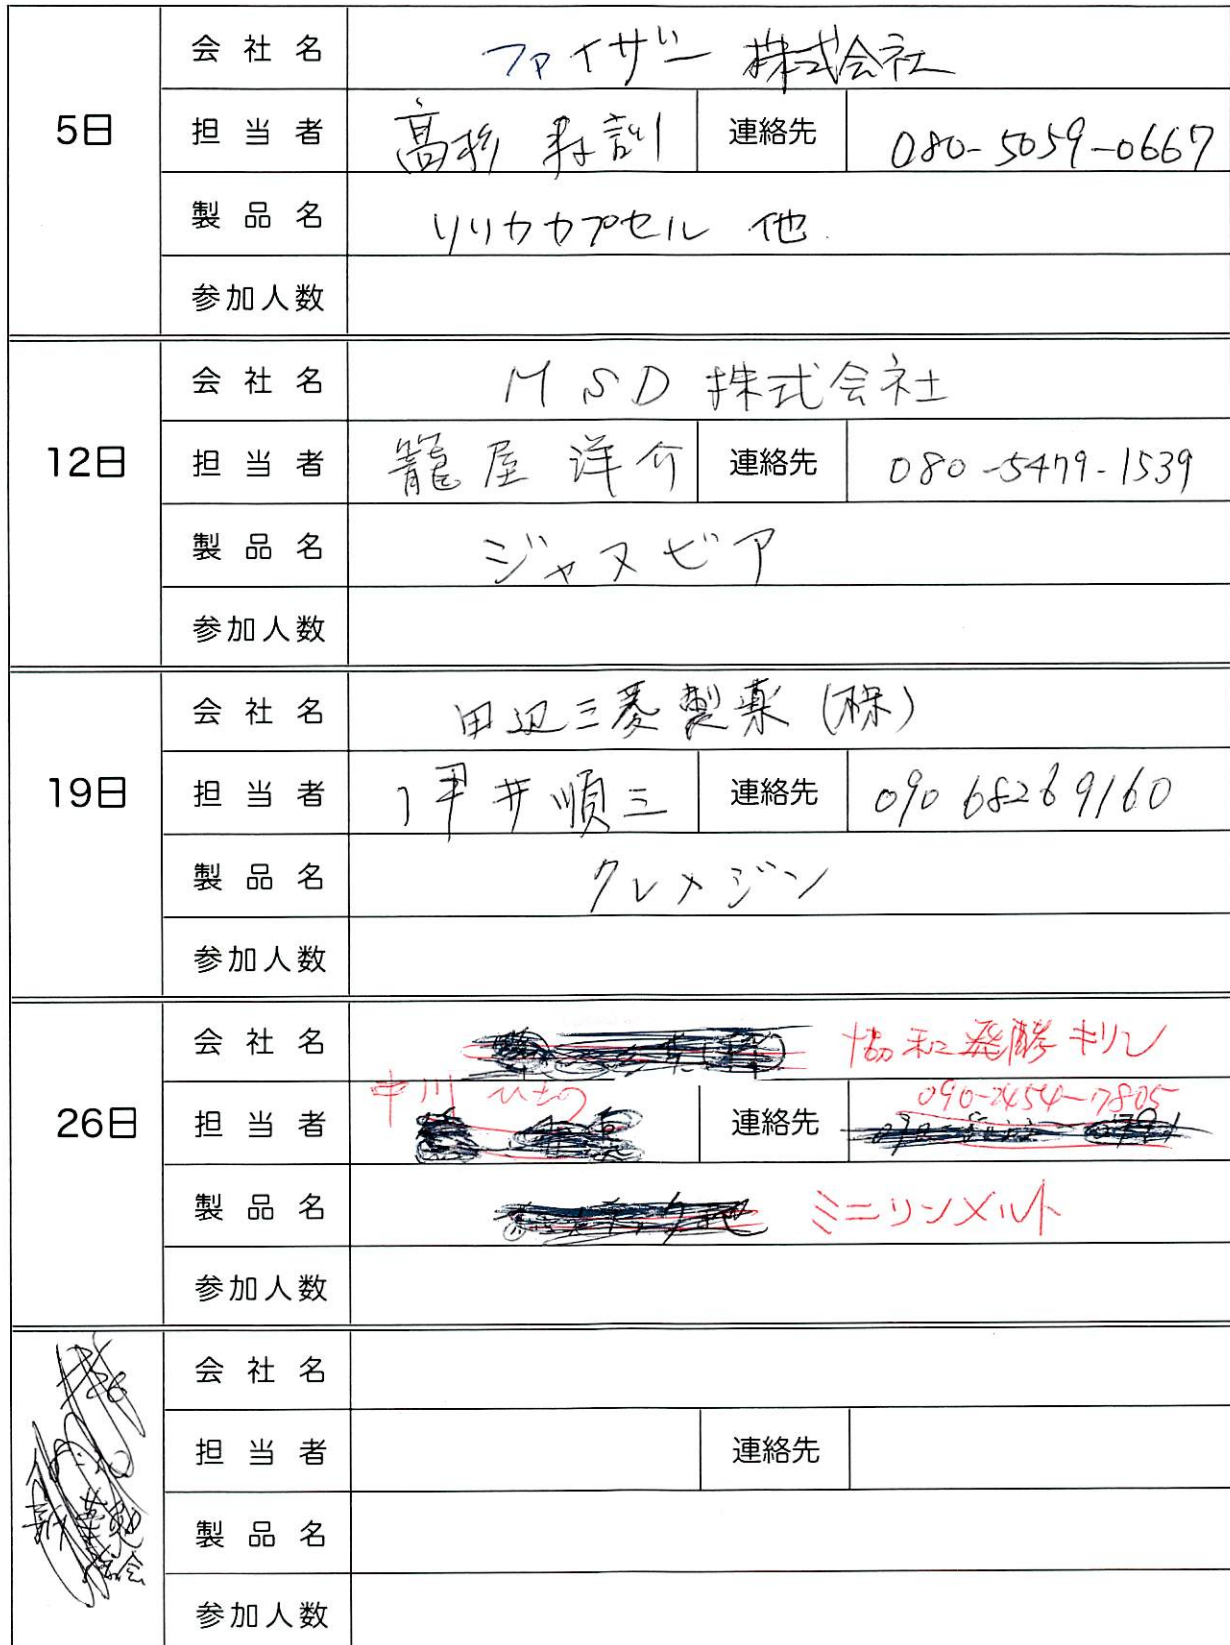 会社名 ファイザー 株式会社
5日 担当者 高杉 寿訓 連絡先 080-5059-0667
製品名 リリカカプセル 他
参加人数
会社名 MSD 株式会社
12日 担当者 籠屋 洋介 連絡先 080-5479-1539
製品名 ジャヌビア
参加人数
会社名 田辺三菱製薬 (株)
19日 担当者 井順三 連絡先 090 6826 9160
製品名 クレメジン
参加人数
会社名 協和発酵キリン
26日 担当者 中川 連絡先 090-2454-7805
製品名 ミニリンメルト
参加人数
会社名
担当者 連絡先
製品名
参加人数